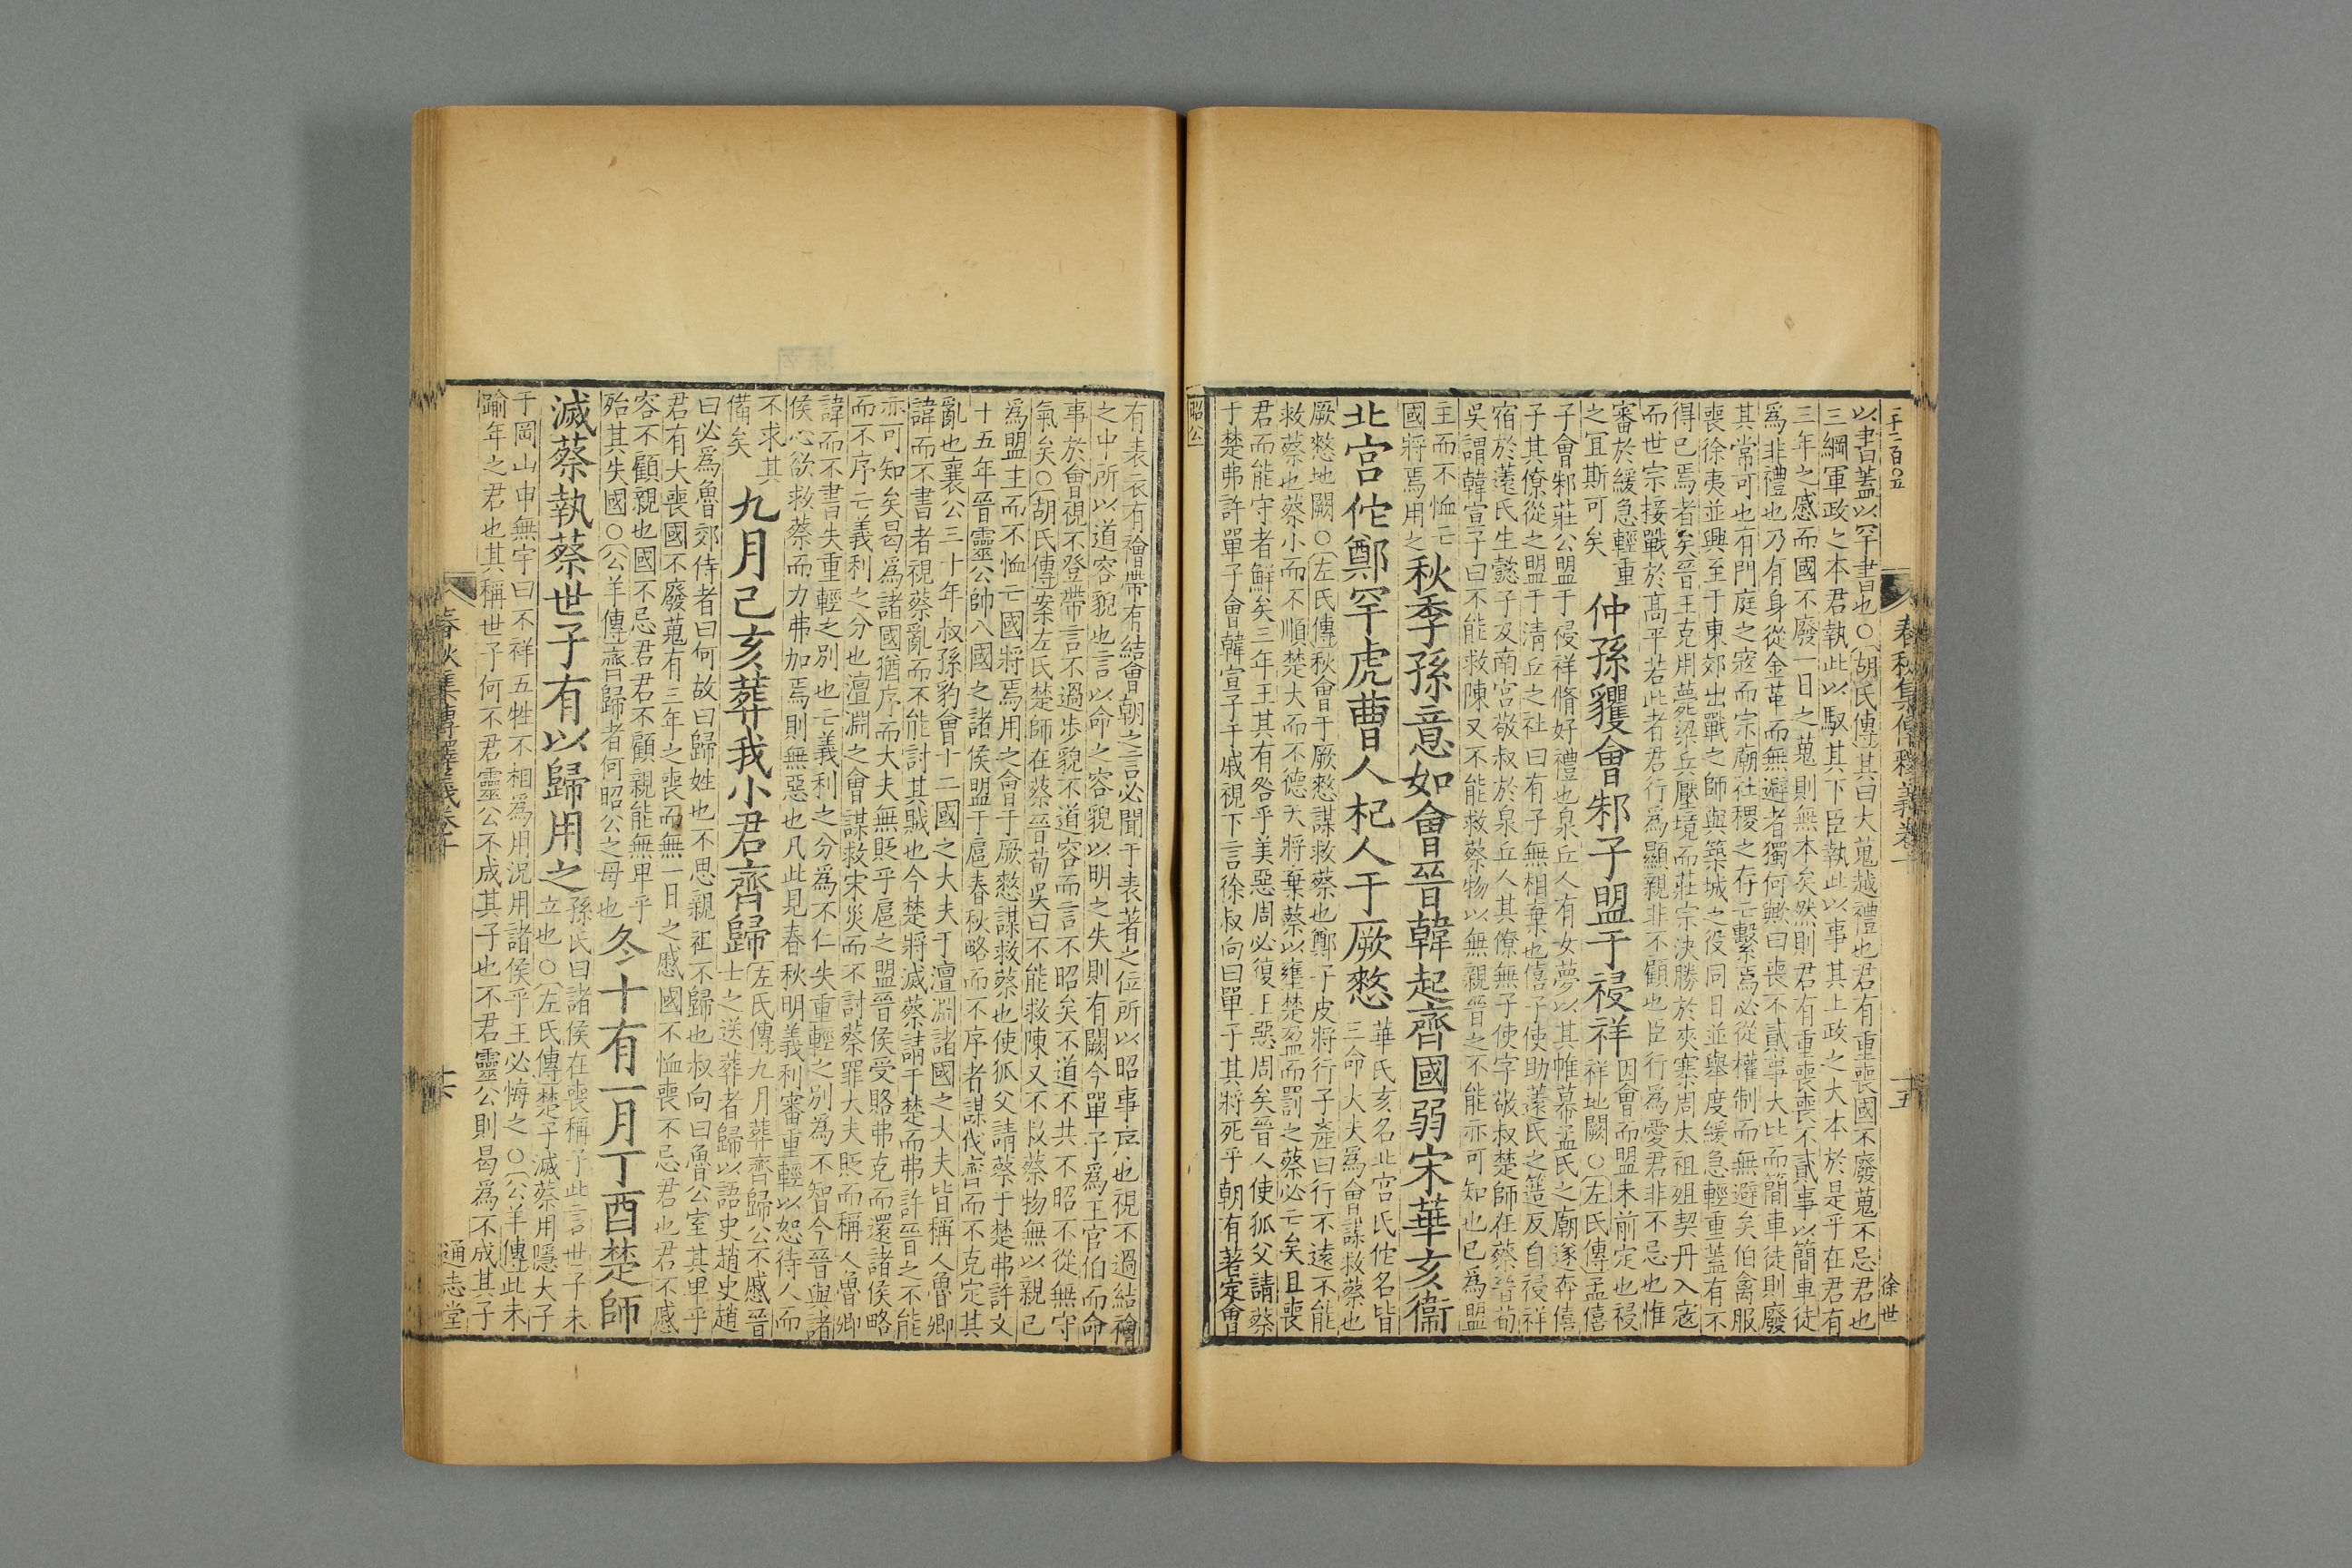 以書蓋以罕書也○胡氏傳其曰大蒐越禮也君有重喪國不廢蒐不忌君也
三綱軍政之本君執此以馭其下臣執此以事其上政之大本於是乎在君有
三年之慼而國不廢一日之蒐則無本矣然則君有重喪喪不貳事以簡車徒
爲非禮也乃有身從金革而無避者獨何歟曰喪不貳事大比而簡車徒則廢
其常可也有門庭之寇而宗廟社稷之存亡繫焉必從權制而無避矣伯禽服
喪徐夷並興至于東郊出戰之師與築城之役同日並舉度緩急輕重蓋有不
得已焉者矣晉王克用薨梁兵壓境而莊宗決勝於夾寨周太祖殂契丹入寇
而世宗接戰於高平若此者君行爲顯親非不顧也臣行爲愛君非不忌也惟
審於緩急輕重
之宜斯可矣
仲孫貜會邾子盟于祲祥
因會而盟未前定也祲
祥地闕○左氏傳孟僖
子會邾莊公盟于祲祥脩好禮也泉丘人有女夢以其帷幕孟氏之廟遂奔僖
子其僚從之盟于清丘之社曰有子無相棄也僖子使助薳氏之簉反自祲祥
宿於薳氏生懿子及南宮敬叔於泉丘人其僚無子使字敬叔楚師在蔡晉荀
吳謂韓宣子曰不能救陳又不能救蔡物以無親晉之不能亦可知也已爲盟
主而不恤亡
國將焉用之
秋季孫意如會晉韓起齊國弱宋華亥衞
北宮佗鄭罕虎曹人杞人于厥憖
華氏亥名北宮氏佗名皆
三命大夫爲會謀救蔡也
厥憖地闕○左氏傳秋會于厥憖謀救蔡也鄭子皮將行子產曰行不遠不能
救蔡也蔡小而不順楚大而不德天將棄蔡以壅楚盈而罰之蔡必亡矣且喪
君而能守者鮮矣三年王其有咎乎美惡周必復王惡周矣晉人使狐父請蔡
于楚弗許單子會韓宣子于戚視下言徐叔向曰單子其將死乎朝有著定會
昭公
二千二百○五
春秋集傳釋義卷十
十五
徐世
有表衣有襘帶有結會朝之言必聞于表著之位所以昭事序也視不過結襘
之中所以道容貌也言以命之容貌以明之失則有闕今單子爲王官伯而命
事於會視不登帶言不過步貌不道容而言不昭矣不道不共不昭不從無守
氣矣○胡氏傳案左氏楚師在蔡晉荀吳曰不能救陳又不救蔡物無以親已
爲盟主而不恤亡國將焉用之會于厥憖謀救蔡也使狐父請蔡于楚弗許文
十五年晉靈公帥八國之諸侯盟于扈春秋略而不序者謀伐齊而不克定其
亂也襄公三十年叔孫豹會十二國之大夫于澶淵諸國之大夫皆稱人魯卿
諱而不書者視蔡亂而不能討其賊也今楚將滅蔡請于楚而弗許晉之不能
亦可知矣曷爲諸國猶序而大夫無貶乎扈之盟晉侯受賂弗克而還諸侯略
而不序亡義利之分也澶淵之會謀救宋災而不討蔡罪大夫貶而稱人魯卿
諱而不書失重輕之別也亡義利之分爲不仁失重輕之別爲不智今晉與諸
侯心欲救蔡而力弗加焉則無惡也凡此見春秋明義利審重輕以恕待人而
不求其
備矣
九月己亥葬我小君齊歸
左氏傳九月葬齊歸公不慼晉
士之送葬者歸以語史趙史趙
曰必爲魯郊侍者曰何故曰歸姓也不思親祖不歸也叔向曰魯公室其卑乎
君有大喪國不廢蒐有三年之喪而無一日之慼國不恤喪不忌君也君不慼
容不顧親也國不忌君君不顧親能無卑乎
殆其失國○公羊傳齊歸者何昭公之母也
冬十有一月丁酉楚師
滅蔡執蔡世子有以歸用之
孫氏曰諸侯在喪稱子此言世子未
立也○左氏傳楚子滅蔡用隱大子
于岡山申無宇曰不祥五牲不相爲用況用諸侯乎王必悔之○公羊傳此未
踰年之君也其稱世子何不君靈公不成其子也不君靈公則曷爲不成其子
春秋集傳釋義卷十
十六
通志堂